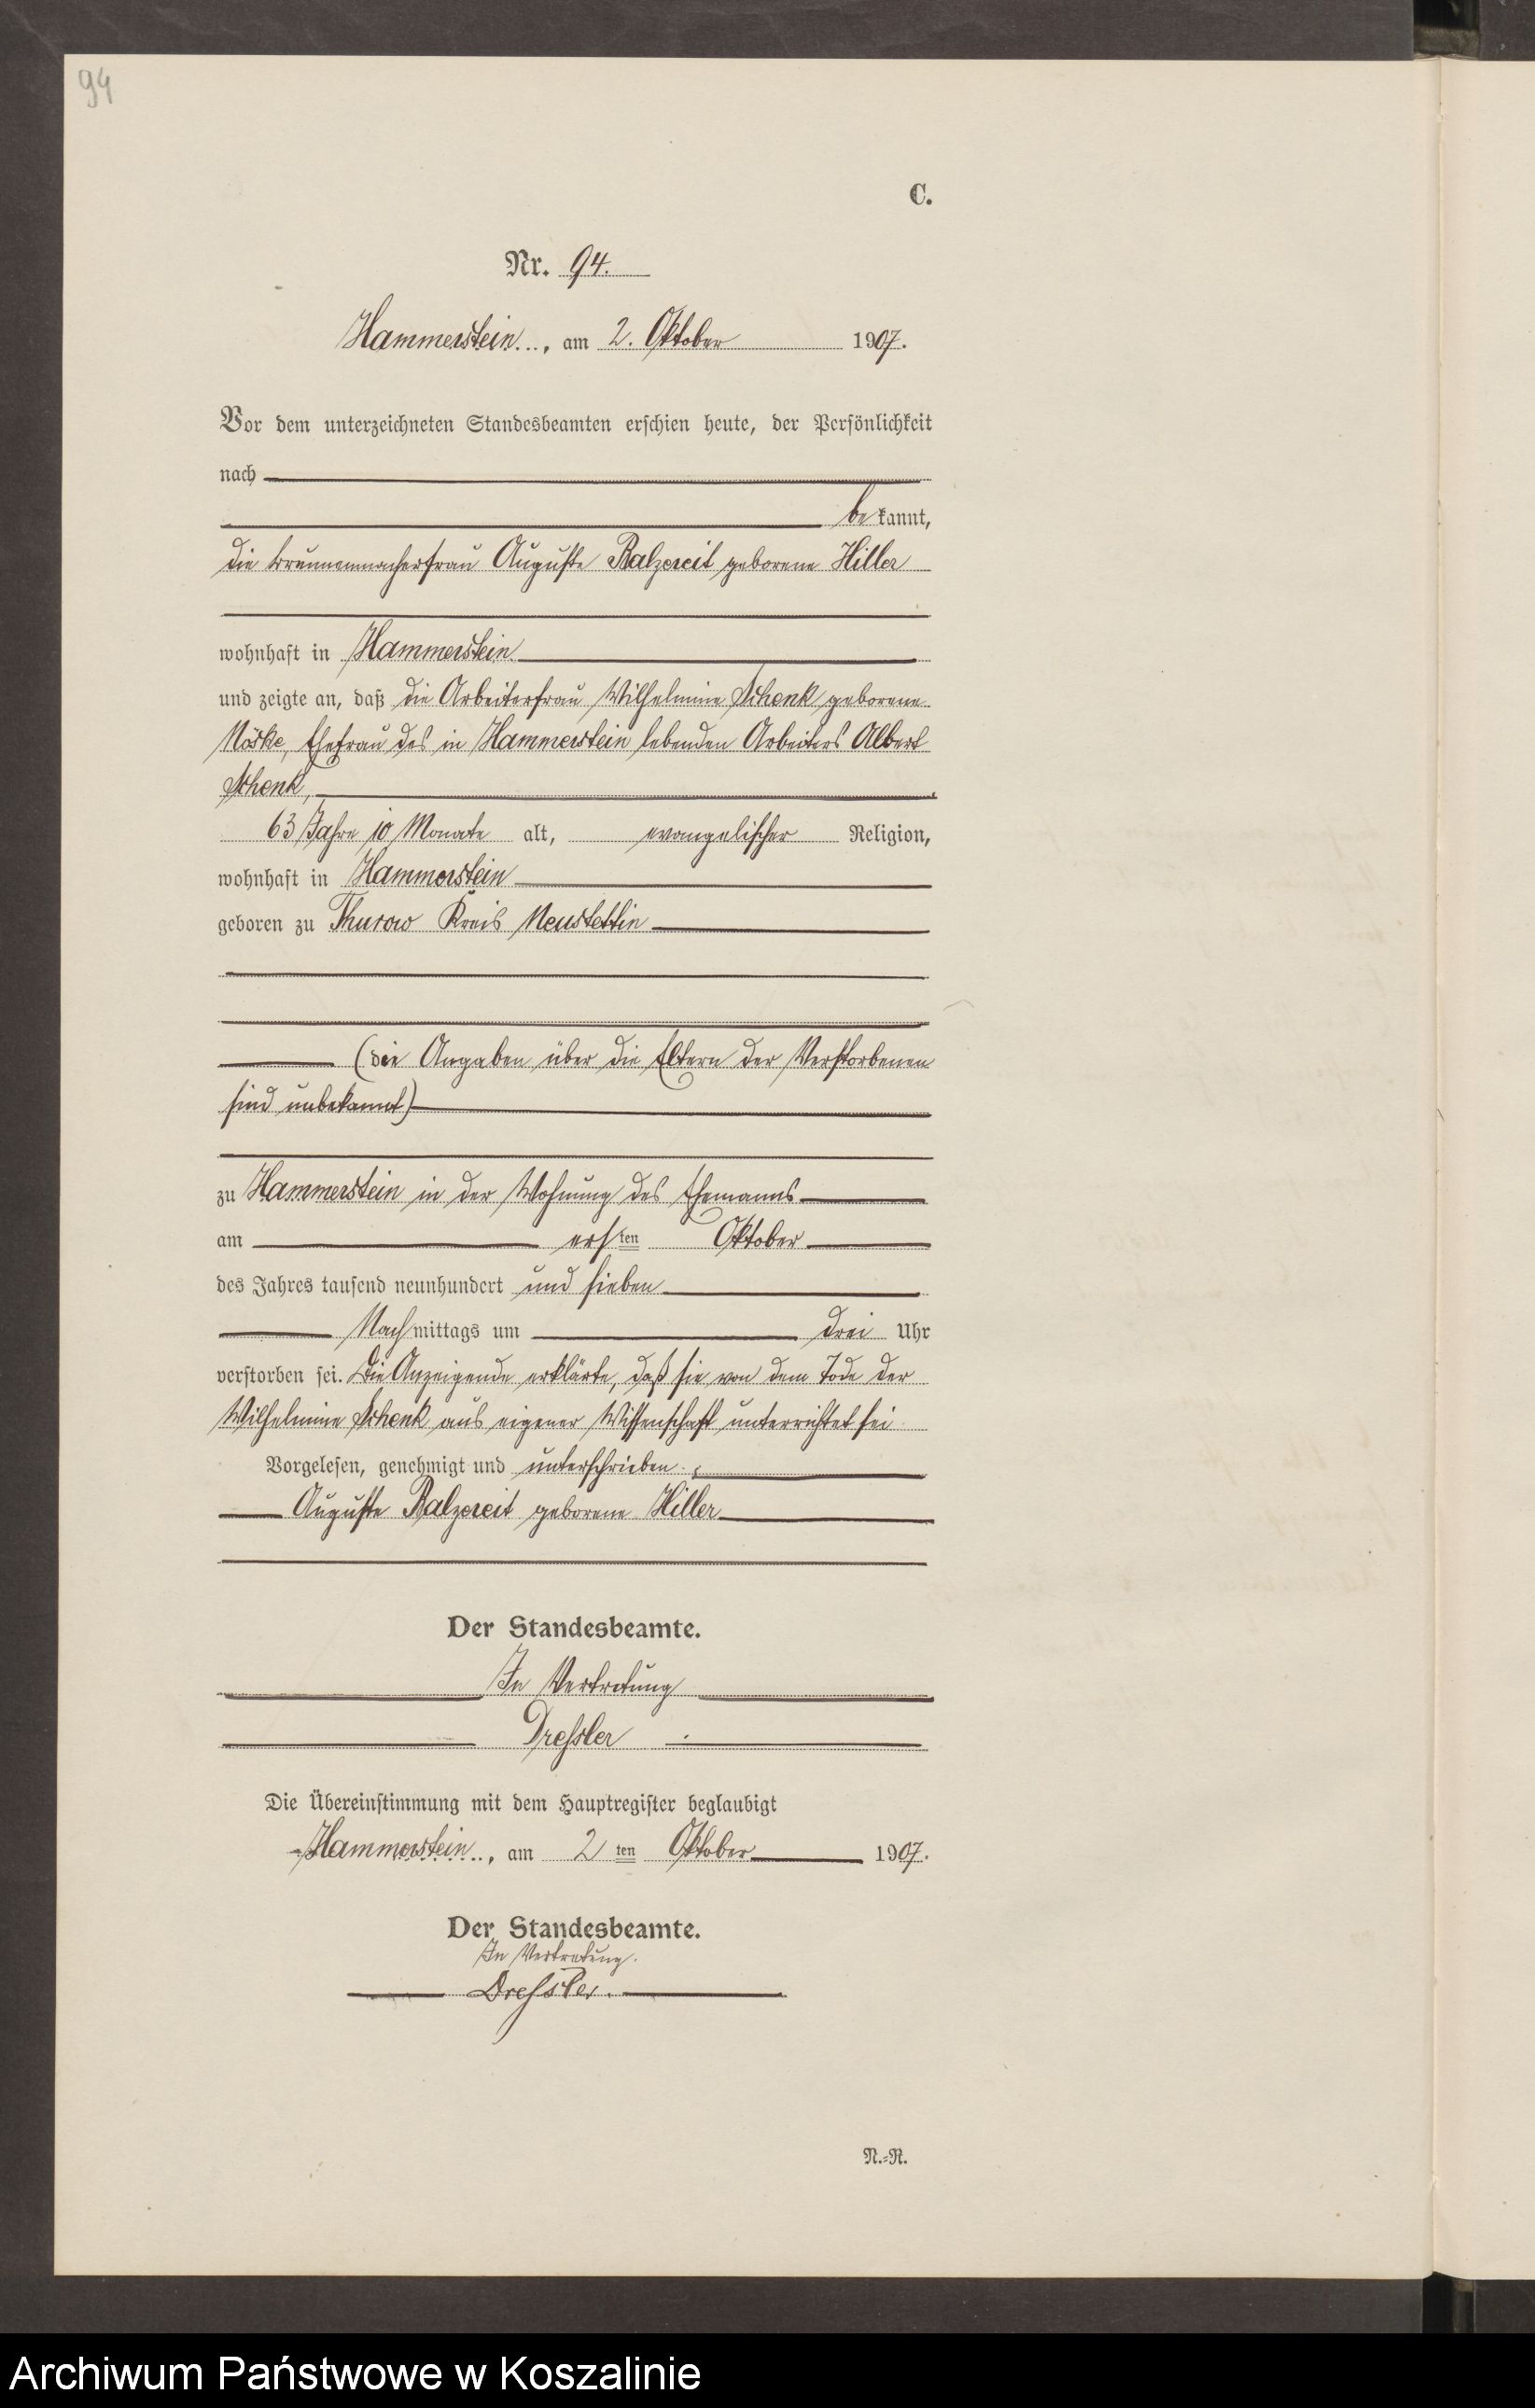 94
C.
Nr. 94.
Hammerstein..., am 2. Oktober 1907.
Vor dem unterzeichneten Standesbeamten erschien heute, der Persönlichkeit
nach
bekannt,
die Brunnenmacherfrau Auguste Balzereit geborene Hiller
wohnhaft in Hammerstein
und zeigte an, daß die Arbeiterfrau Wilhelmine Schenk geborene
Nöske, Ehefrau des in Hammerstein lebenden Arbeiters Albert
Schenk,
63 Jahre 10 Monate alt, evangelischer Religion,
wohnhaft in Hammerstein
geboren zu Thurow Kreis Neustettin
(die Angaben über die Eltern der Verstorbenen
sind unbekannt)
zu Hammerstein in der Wohnung des Ehemanns
am ersten Oktober
des Jahres tausend neunhundert und sieben
Nachmittags um drei Uhr
verstorben sei. Die Anzeigende erklärte, daß sie von dem Tode der
Wilhelmine Schenk aus eigener Wissenschaft unterrichtet sei
Vorgelesen, genehmigt und unterschrieben.
Auguste Balzereit geborene Hiller
Der Standesbeamte.
In Vertretung
Dressler
Die Übereinstimmung mit dem Hauptregister beglaubigt
Hammerstein.., am 2ten Oktober 1907.
Der Standesbeamte.
In Vertretung.
Dressler.
N.=R.
Archiwum Państwowe w Koszalinie